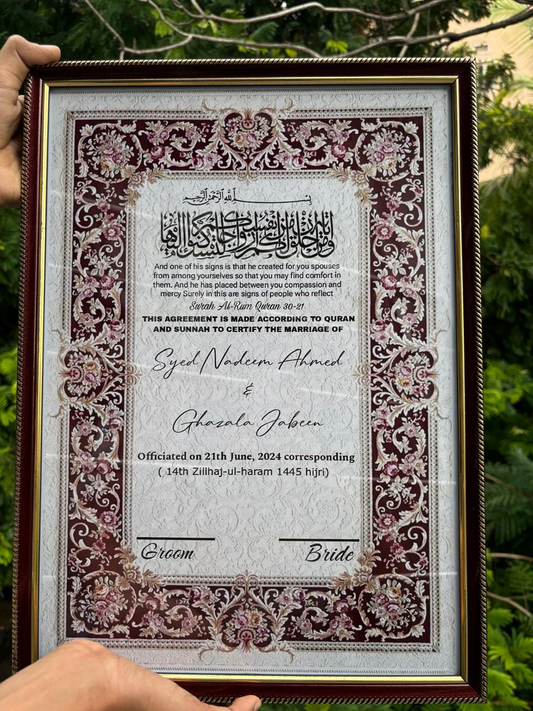 بسم الله الرحمن الرحيم
And one of his signs is that he created for you spouses
from among yourselves so that you may find comfort in
them. And he has placed between you compassion and
mercy Surely in this are signs of people who reflect
Surah Al-Rum Quran 30-21
THIS AGREEMENT IS MADE ACCORDING TO QURAN
AND SUNNAH TO CERTIFY THE MARRIAGE OF
Syed Nadeem Ahmed
&
Ghazala Jabeen
Officiated on 21th June, 2024 corresponding
( 14th Zillhaj-ul-haram 1445 hijri)
Groom Bride